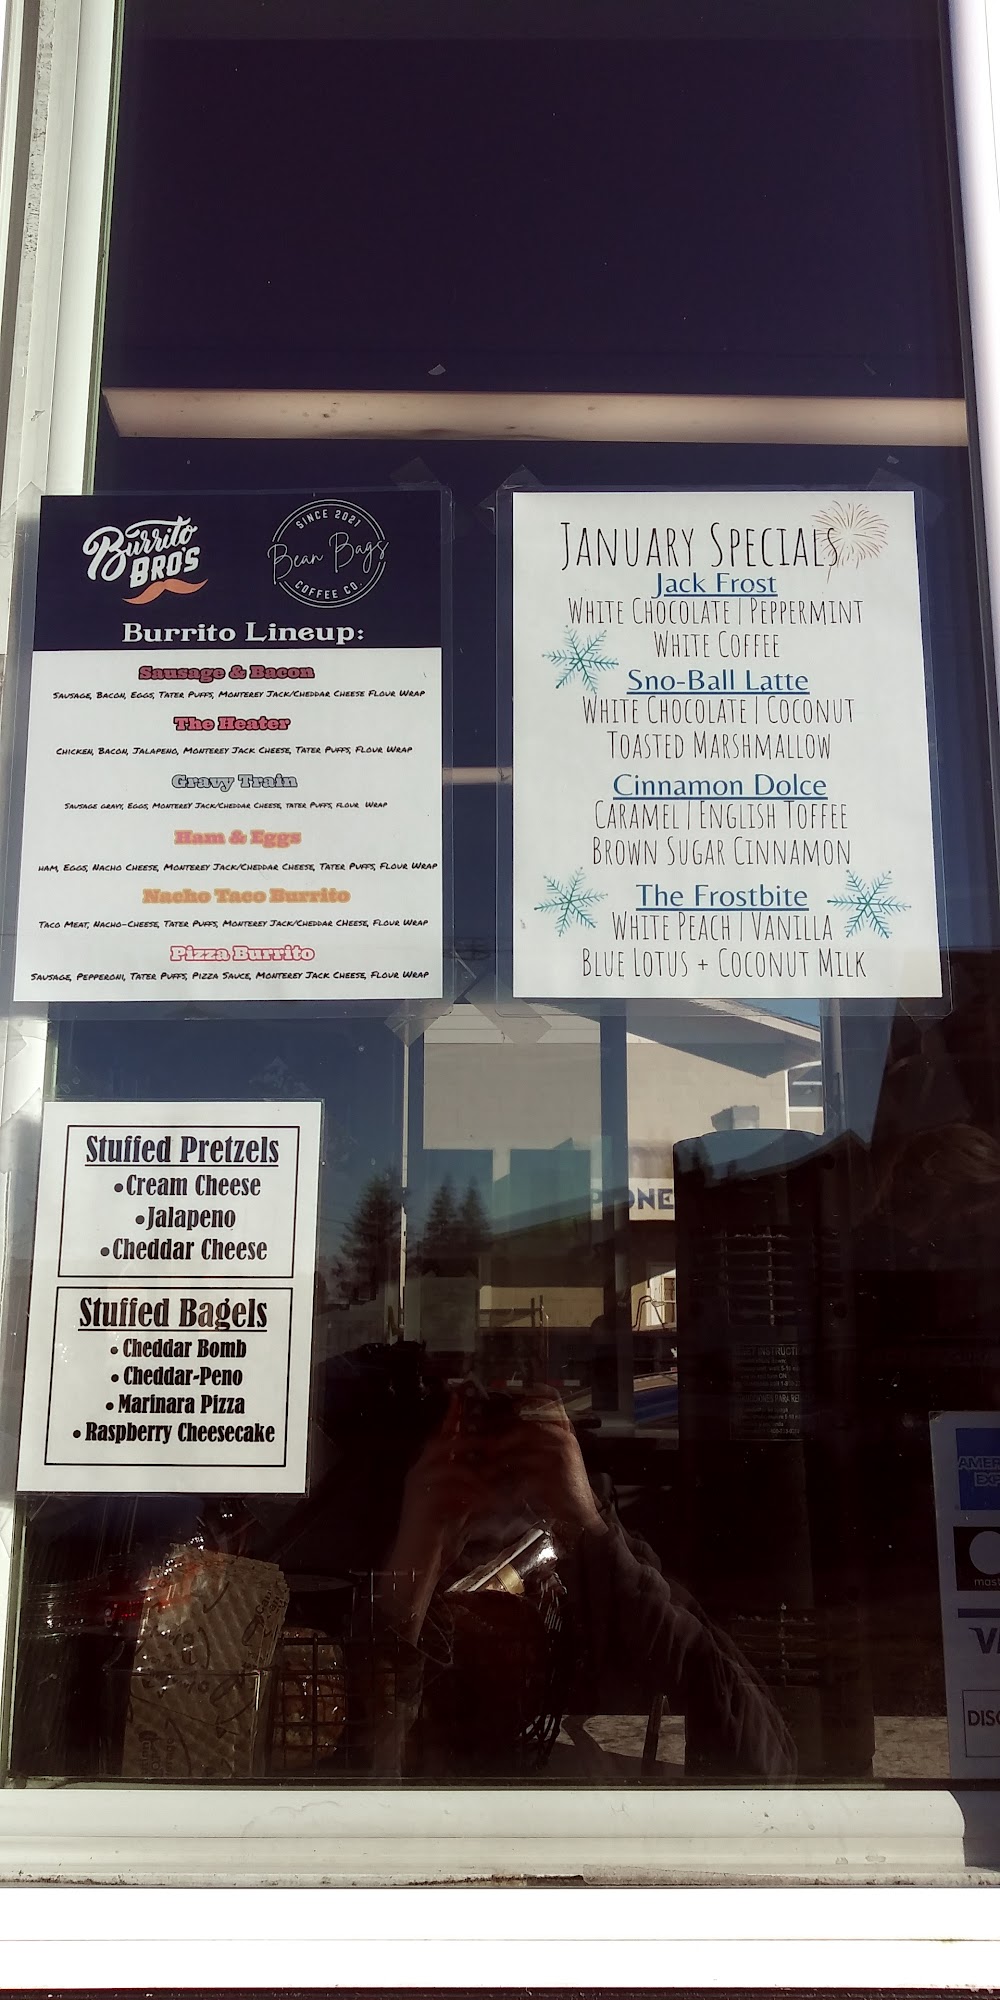 Burrito
BRO'S
SINCE 2021
Bean Bags
COFFEE CO.
Burrito Lineup:
Sausage & Bacon
Sausage, Bacon, Eggs, Tater Puffs, Monterey Jack/Cheddar Cheese Flour Wrap
The Heater
Chicken, Bacon, Jalapeno, Monterey Jack Cheese, Tater Puffs, Flour Wrap
Gravy Train
Sausage gravy, Eggs, Monterey Jack/Cheddar Cheese, tater Puffs, flour Wrap
Ham & Eggs
Ham, Eggs, Nacho Cheese, Monterey Jack/Cheddar Cheese, Tater Puffs, Flour Wrap
Nacho Taco Burrito
Taco Meat, Nacho-Cheese, Tater Puffs, Monterey Jack/Cheddar Cheese, Flour Wrap
Pizza Burrito
Sausage, Pepperoni, Tater Puffs, Pizza Sauce, Monterey Jack Cheese, Flour Wrap
January Specials
Jack Frost
White Chocolate | Peppermint
White Coffee
Sno-Ball Latte
White Chocolate | Coconut
Toasted Marshmallow
Cinnamon Dolce
Caramel | English Toffee
Brown Sugar Cinnamon
The Frostbite
White Peach | Vanilla
Blue Lotus + Coconut Milk
Stuffed Pretzels
• Cream Cheese
• Jalapeno
• Cheddar Cheese
Stuffed Bagels
• Cheddar Bomb
• Cheddar-Peno
• Marinara Pizza
• Raspberry Cheesecake
AMER
EXP
mast
V
DISC